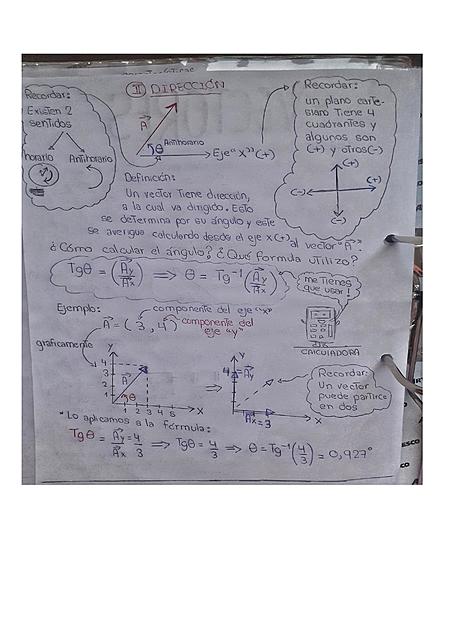 II DIRECCIÓN
Recordar:
Existen 2
sentidos
horario Antihorario
A
Antihorario
θ
Eje "x" (+)
Recordar:
un plano carte-
siano tiene 4
cuadrantes y
algunos son
(+) y otros (-)
(+)
(-) (+)
(-)
Definición:
Un vector tiene dirección,
a la cual va dirigido. Esto
se determina por su ángulo y este
se averigua calculando desde el eje x(+) al vector "A".
¿Cómo calcular el ángulo? ¿Qué formula utilizo?
Tgθ = (Ay/Ax) ⟹ θ = Tg⁻¹(Ay/Ax)
me tienes
que usar!
CALCULADORA
Ejemplo:
componente del eje "x"
A = (3, 4)
componente del
eje "y"
graficamente
Y
4
3
2
1
A
θ
1 2 3 4 5 X
⟹
Y
4 Ay
Ax=3
X
Recordar:
Un vector
puede partirce
en dos
* Lo aplicamos a la fórmula:
Tgθ = Ay/Ax = 4/3 ⟹ Tgθ = 4/3 ⟹ θ = Tg⁻¹(4/3) = 0,927°